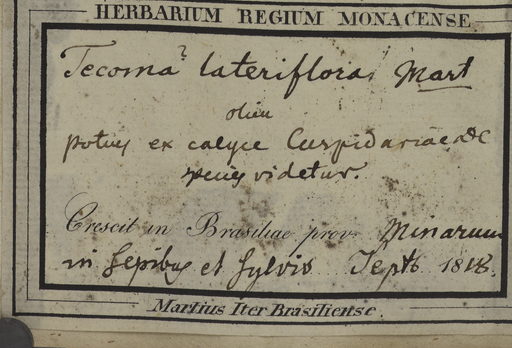 HERBARIUM REGIUM MONACENSE
Tecoma? lateriflora Mart
olim
potius ex calyce Cuspidariae DC
species videtur.
Crescit in Brasiliae prov. Minarum
in sepibus et sylvis Septb 1818.
Martius Iter Brasiliense.